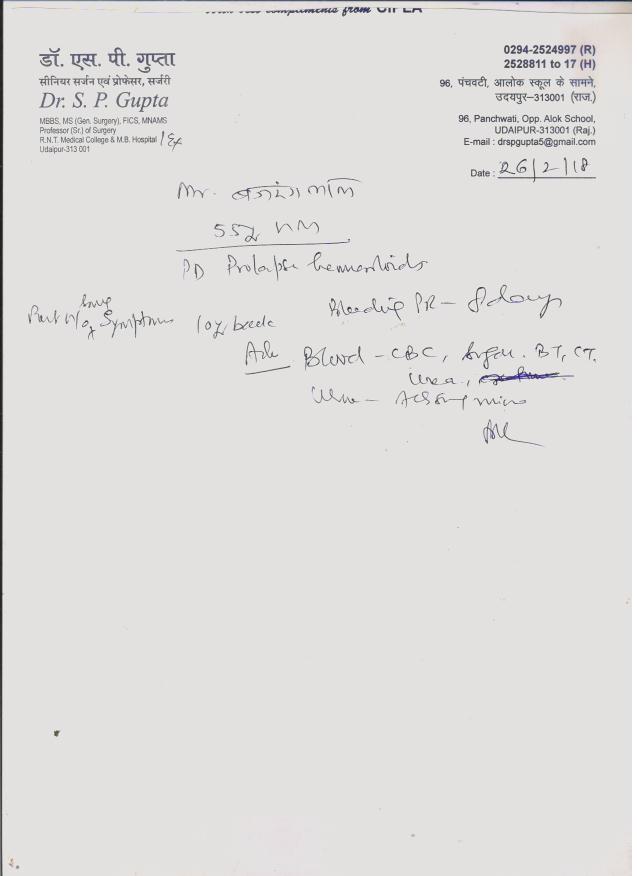 compliments from CIPLA
डॉ. एस. पी. गुप्ता
सीनियर सर्जन एवं प्रोफेसर, सर्जरी
Dr. S. P. Gupta
MBBS, MS (Gen. Surgery), FICS, MNAMS
Professor (Sr.) of Surgery
R.N.T. Medical College & M.B. Hospital / Ex
Udaipur-313 001
0294-2524997 (R)
2528811 to 17 (H)
96, पंचवटी, आलोक स्कूल के सामने,
उदयपुर–313001 (राज.)
96, Panchwati, Opp. Alok School,
UDAIPUR-313001 (Raj.)
E-mail : drspgupta5@gmail.com
Date : 26/2/18
Mr. बजरंग
55y
PD Prolapse hemorrhoids
Bleeding PR – 8 days
Past H/o Symptoms 10y back
Blood – CBC, Sugar. BT, CT.
Urea,
Urine –